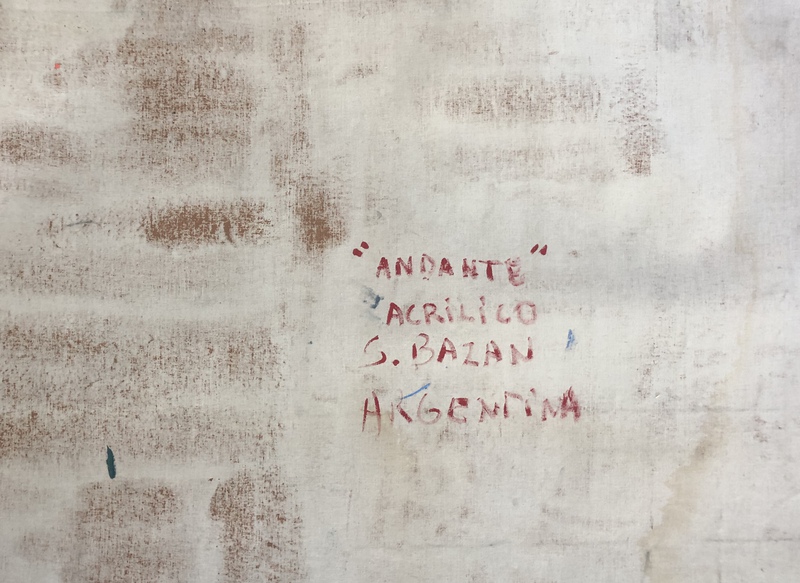 "ANDANTE"
ACRiLiCO
S. BAZAN
ARGENTINA